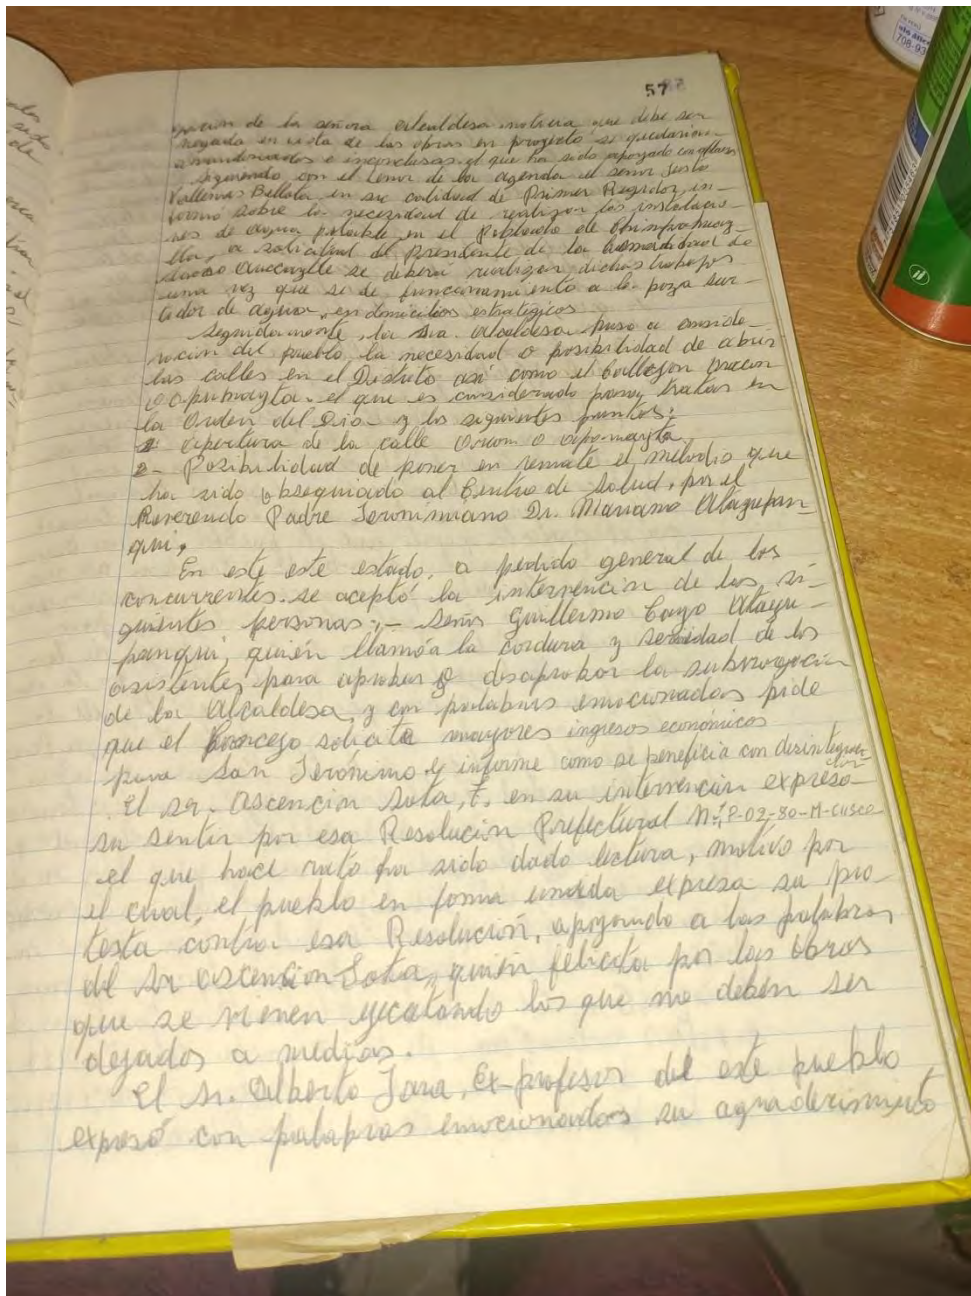 57
gación de la señora Alcaldesa motivo que debe ser
negada en vista de las obras en proyecto se quedarían
abandonados e inconclusas, el que ha sido apoyado con aplausos
Siguiendo con el tenor de la agenda el señor Justo
Vallenas Bellota en su calidad de Primer Regidor, in-
formó sobre la necesidad de realizar las instalacio-
nes de agua potable en el Poblado de
lla, a solicitud del Presidente de la Comunidad de
se deberá realizar dichos trabajos
una vez que se de funcionamiento a la poza sur-
tidor de agua, en domicilios estratégicos.
Seguidamente, la Sra. Alcaldesa puso a conside-
ración del pueblo la necesidad o posibilidad de abrir
las calles en el Distrito así como el Callejón
el que es considerado para tratar en
la Orden del Día y los siguientes puntos:
Apertura de la calle
2- Posibilidad de poner en remate el que
ha sido obsequiado al Centro de Salud, por el
Reverendo Padre Jeronimiano Dr. Mariano Atayupan-
qui.
En este este estado, a pedido general de los
concurrentes se aceptó la intervención de las si-
guientes personas:- Señor Guillermo Atayu-
panqui, quién llamó a la cordura y seriedad de los
asistentes para aprobar o desaprobar la subrogación
de la Alcaldesa, y con palabras emocionadas pide
que el Concejo solicite mayores ingresos económicos
para San Jerónimo y informe como se beneficia con
El Sr. Ascención Sota, F. en su intervención expresó
su sentir por esa Resolución Prefectural Nº P-02-80-M-CUSCO
el que hace rato ha sido dado lectura, motivo por
el cual, el pueblo en forma unida expresa su pro-
testa contra esa Resolución, apoyando a las palabras
del Sr Ascención Sota, quién felicita por las obras
que se vienen ejecutando los que no deben ser
dejados a medias.
El Sr. Alberto Jara, Ex-profesor del este pueblo
expresó con palabras emocionados su agradecimiento
708-93